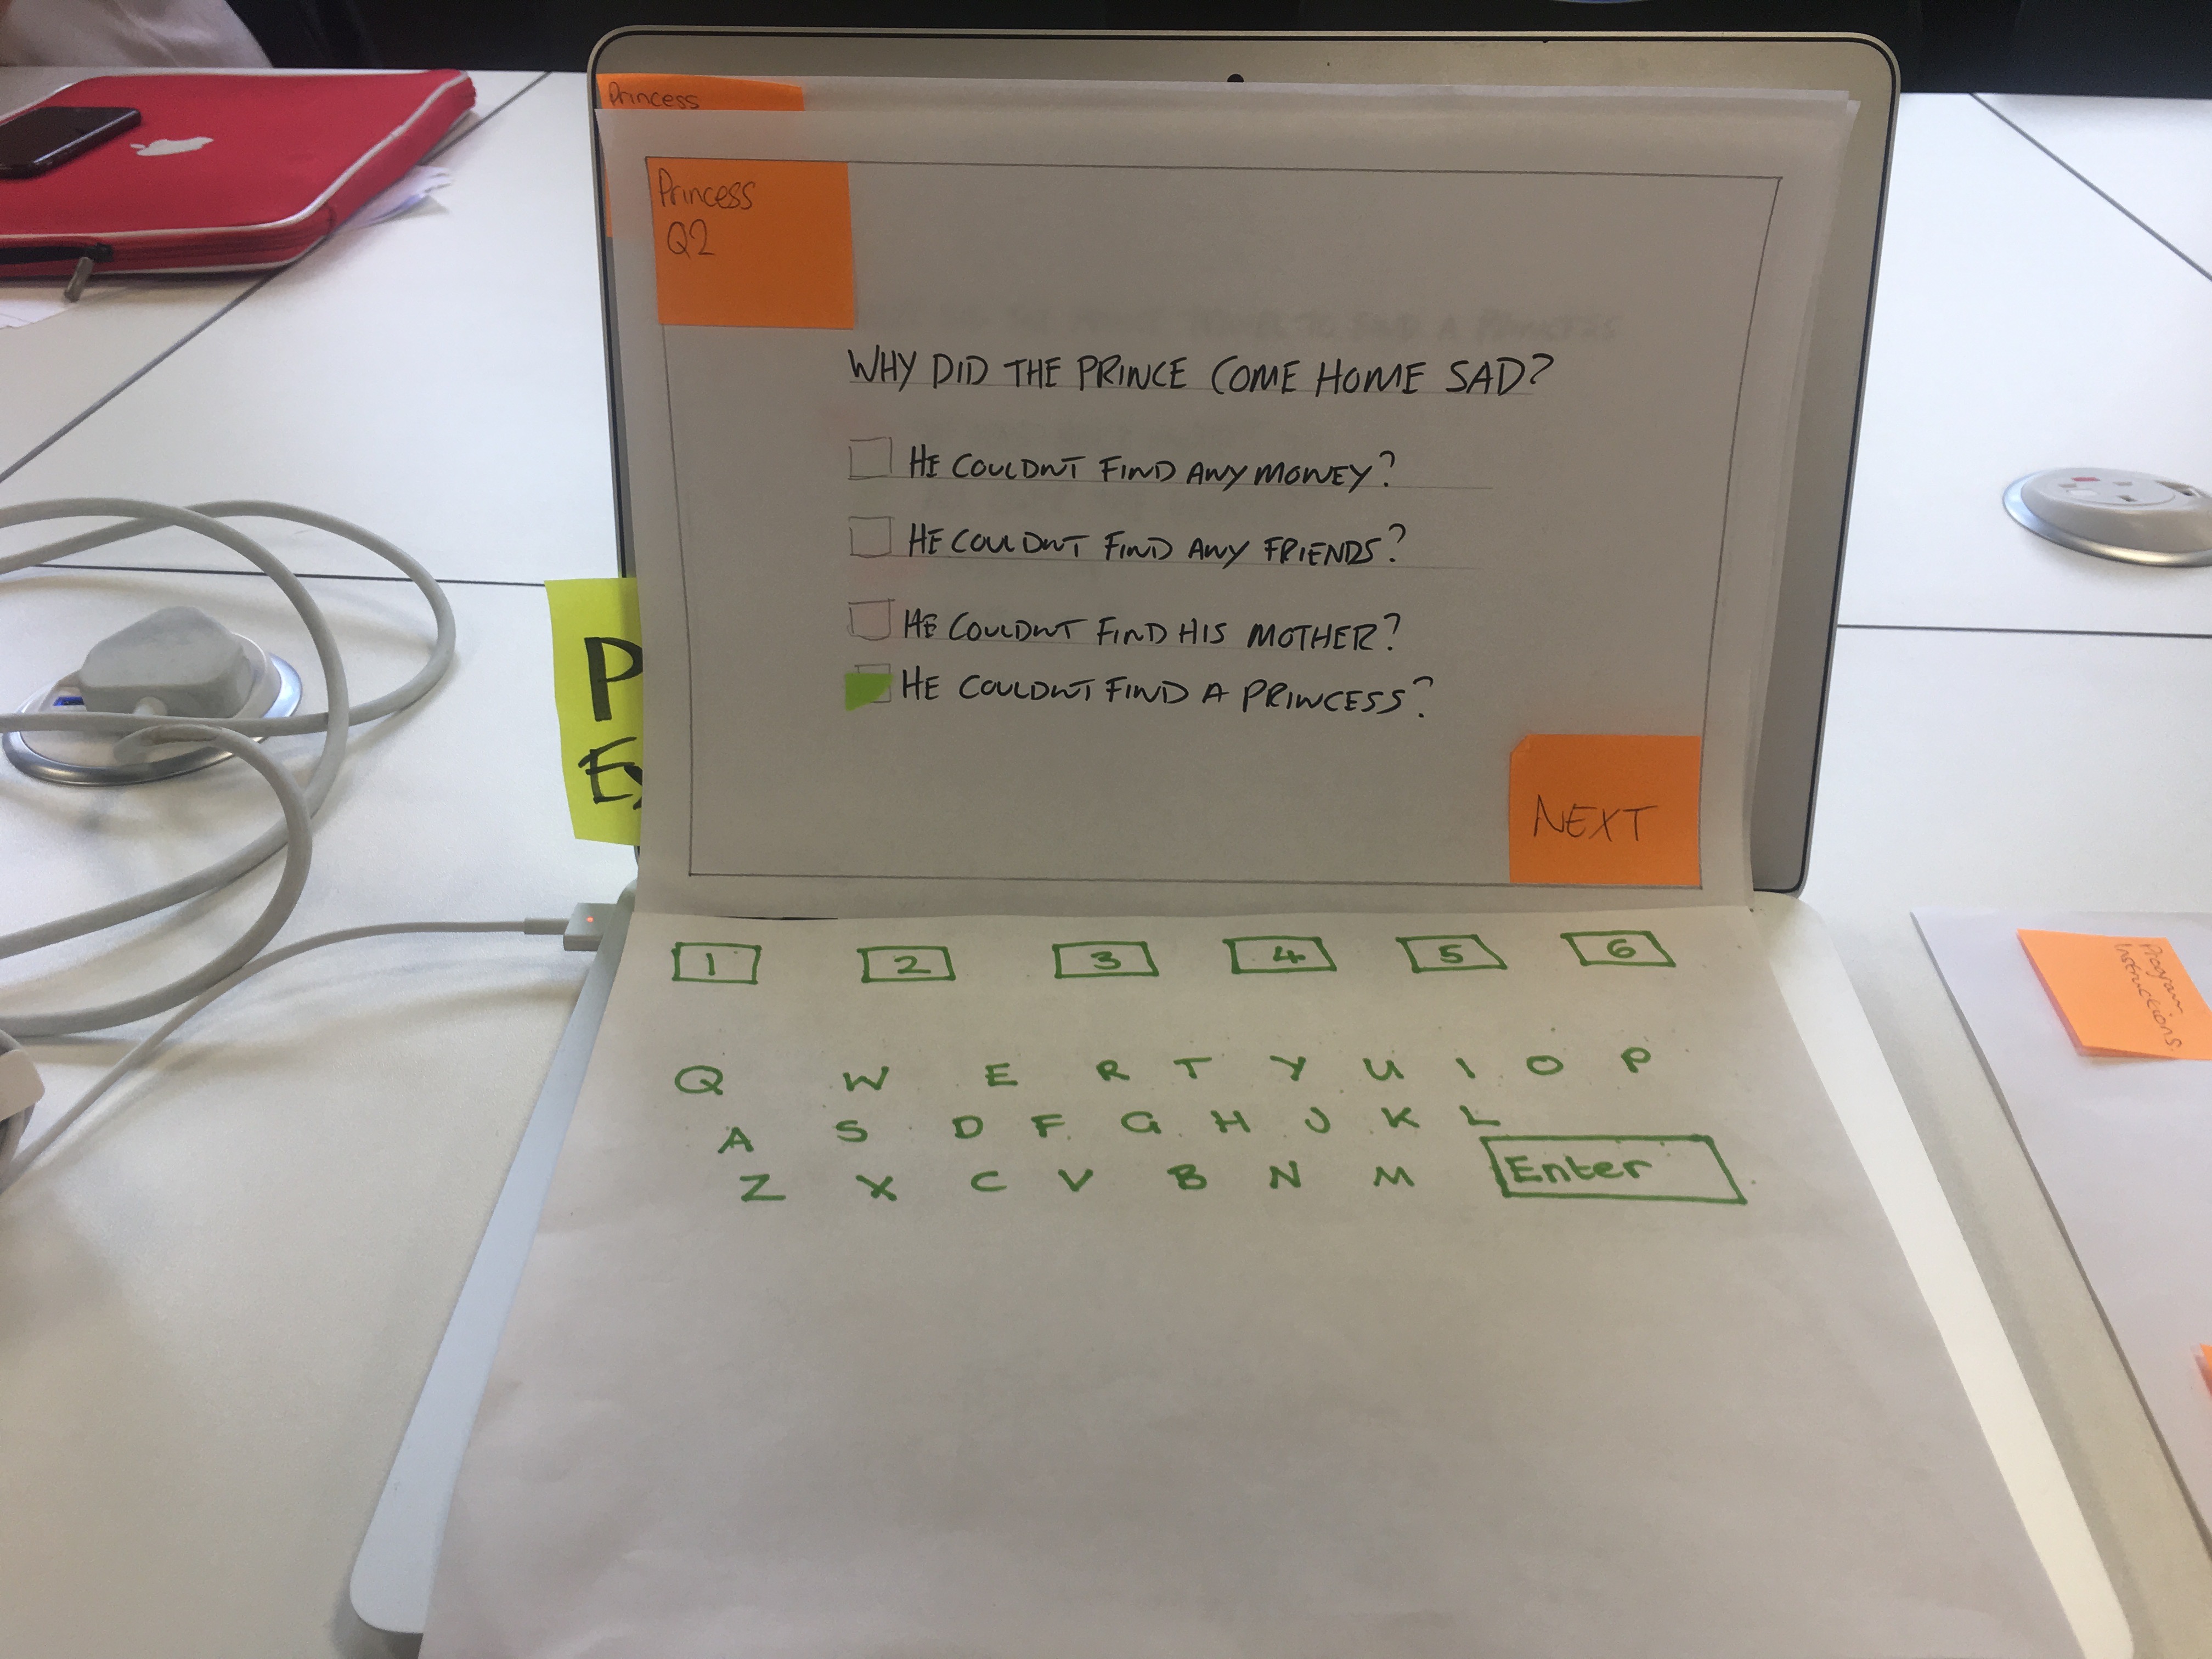 Princess
Princess
Q2
WHY DID THE PRINCE COME HOME SAD?
HE COULDNT FIND ANY MONEY?
HE COULDNT FIND ANY FRIENDS?
HE COULDNT FIND HIS MOTHER?
HE COULDNT FIND A PRINCESS?
NEXT
P
Ex
1 2 3 4 5 6
Q W E R T Y U I O P
A S D F G H J K L
Z X C V B N M Enter
Program
instructions